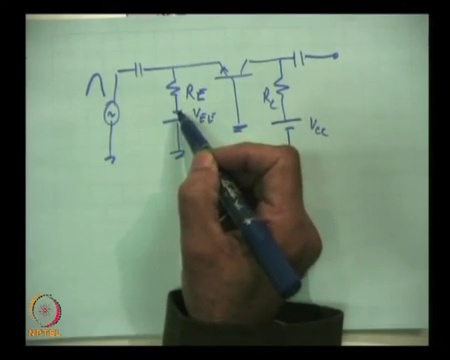 RE
VEE
RC
VCC
NPTEL